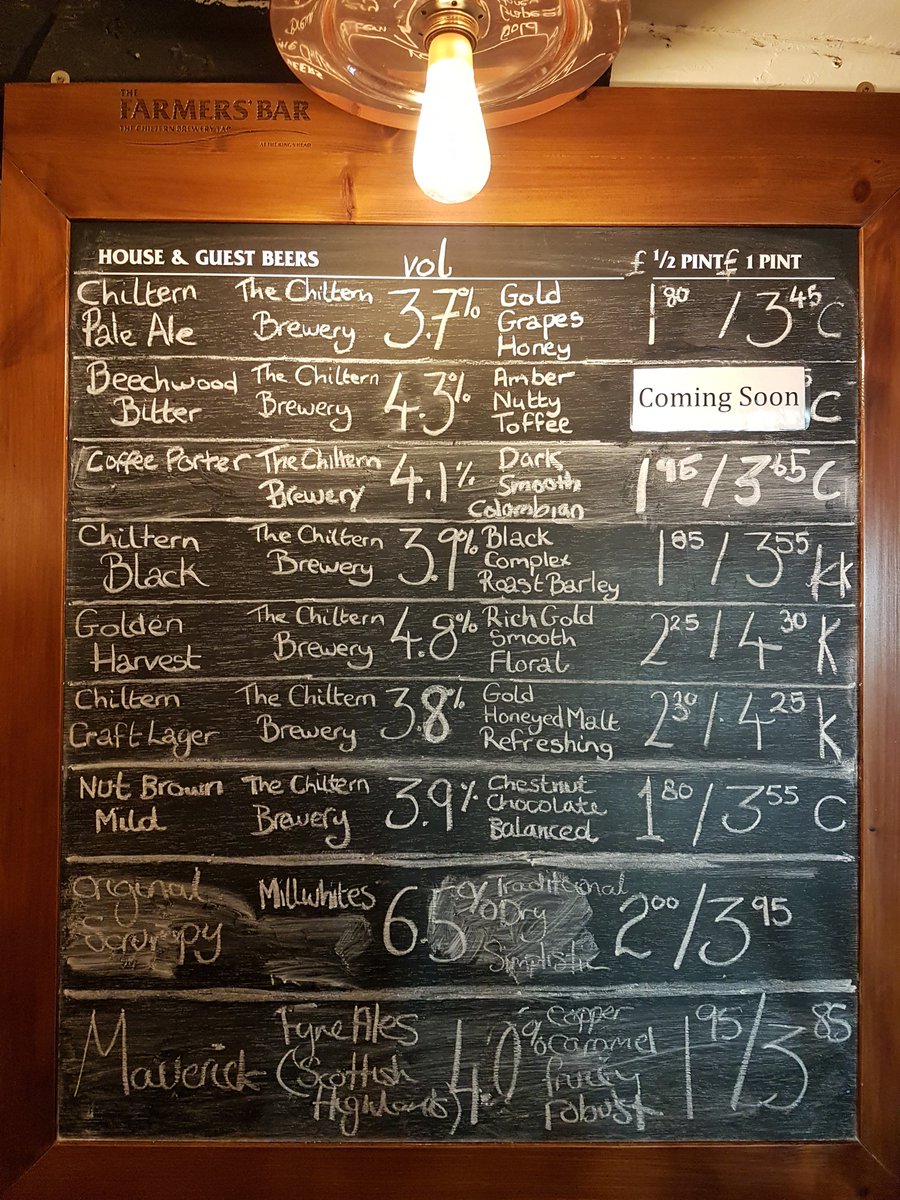 THE
FARMERS' BAR
THE CHILTERN BREWERY TAP
AT THE KING'S HEAD
HOUSE & GUEST BEERS vol £ 1/2 PINT £ 1 PINT
Chiltern Pale Ale The Chiltern Brewery 3.7% Gold Grapes Honey 1 80 / 3 45 C
Beechwood Bitter The Chiltern Brewery 4.3% Amber Nutty Toffee Coming Soon C
Coffee Porter The Chiltern Brewery 4.1% Dark Smooth Colombian 1 95 / 3 65 C
Chiltern Black The Chiltern Brewery 3.9% Black Complex Roast Barley 1 85 / 3 55 K
Golden Harvest The Chiltern Brewery 4.8% Rich Gold Smooth Floral 2 25 / 4 30 K
Chiltern Craft Lager The Chiltern Brewery 3.8% Gold Honeyed Malt Refreshing 2 30 / 4 25 K
Nut Brown Mild The Chiltern Brewery 3.9% Chestnut Chocolate Balanced 1 80 / 3 55 C
Original Scrumpy Millwhites 6.5% Traditional Dry Simplistic 2 00 / 3 95
Maverick Fyne Ales (Scottish Highlands) 4.0% Copper Caramel fruity robust 1 95 / 3 85